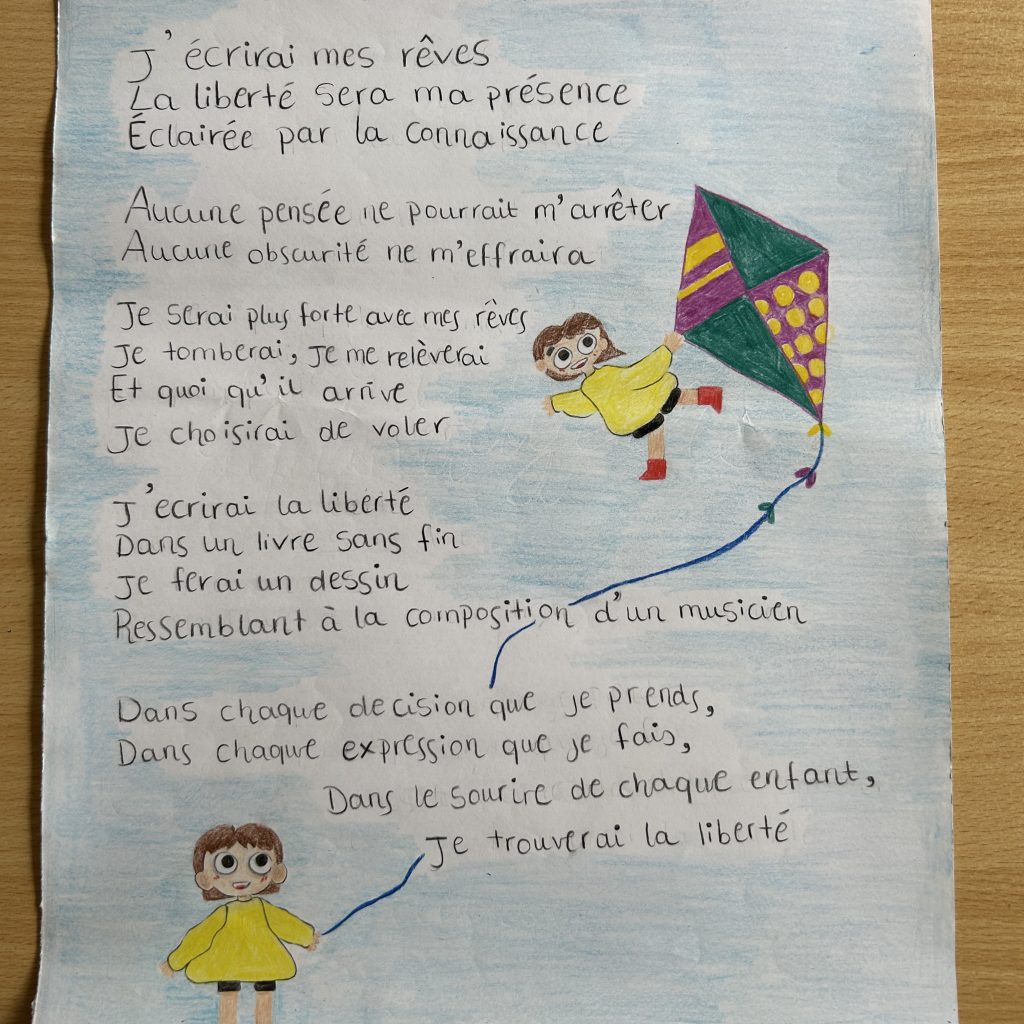 J'écrirai mes rêves
La liberté sera ma présence
Éclairée par la connaissance
Aucune pensée ne pourrait m'arrêter
Aucune obscurité ne m'effraira
Je serai plus forte avec mes rêves
Je tomberai, je me relèverai
Et quoi qu'il arrive
Je choisirai de voler
J'ecrirai la liberté
Dans un livre sans fin
Je ferai un dessin
Ressemblant à la composition d'un musicien
Dans chaque decision que je prends,
Dans chaque expression que je fais,
Dans le sourire de chaque enfant,
Je trouverai la liberté